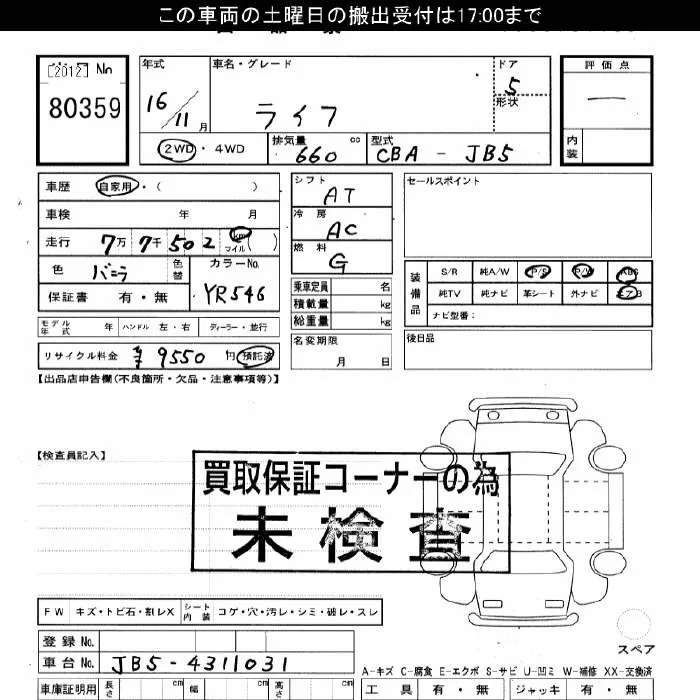 この車両の土曜日の搬出受付は17:00まで
[2012] No
80359
年式
16/11月
車名・グレード
ライフ
ドア
5
形状
評価点
—
内装
2WD・4WD
排気量
660 cc
型式
CBA - JB5
車歴 自家用・( )
車検 年 月
走行 7万 7千 502 km マイル ( )
色 バニラ 色替
カラーNo.
YR546
保証書 有・無
モデル年式 年 ハンドル 左・右 ディーラー・並行
リサイクル料金 ¥9550 円 預託済
シフト
AT
冷房
AC
燃料
G
乗車定員 名
積載量 kg
総重量 kg
名変期限
月 日
セールスポイント
装備品
S/R 純A/W P/S P/W ABS
純TV 純ナビ 革シート 外ナビ エアB
ナビ型番:
後日品
【出品店申告欄(不良箇所・欠品・注意事項等)】
【検査員記入】
買取保証コーナーの為
未検査
FW キズ・トビ石・割レX シート内装 コゲ・穴・汚レ・シミ・破レ・スレ
登録No.
車台No. JB5-4311031
車庫証明用 長さ cm 幅 cm 高さ cm
スペア
A-キズ C-腐食 E-エクボ S-サビ U-凹ミ W-補修 XX-交換済
工具 有・無 ジャッキ 有・無